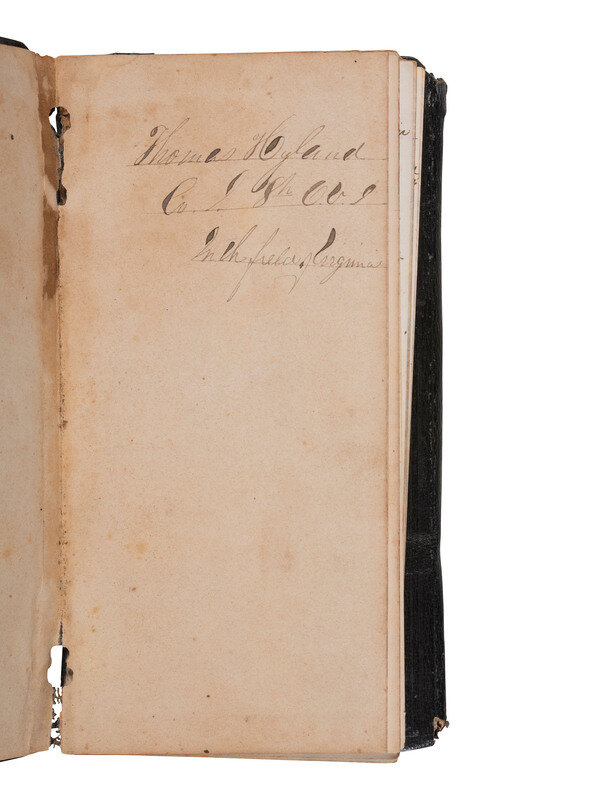 Thomas Hyland
Co. I 8th O V I
In th field, Virginia